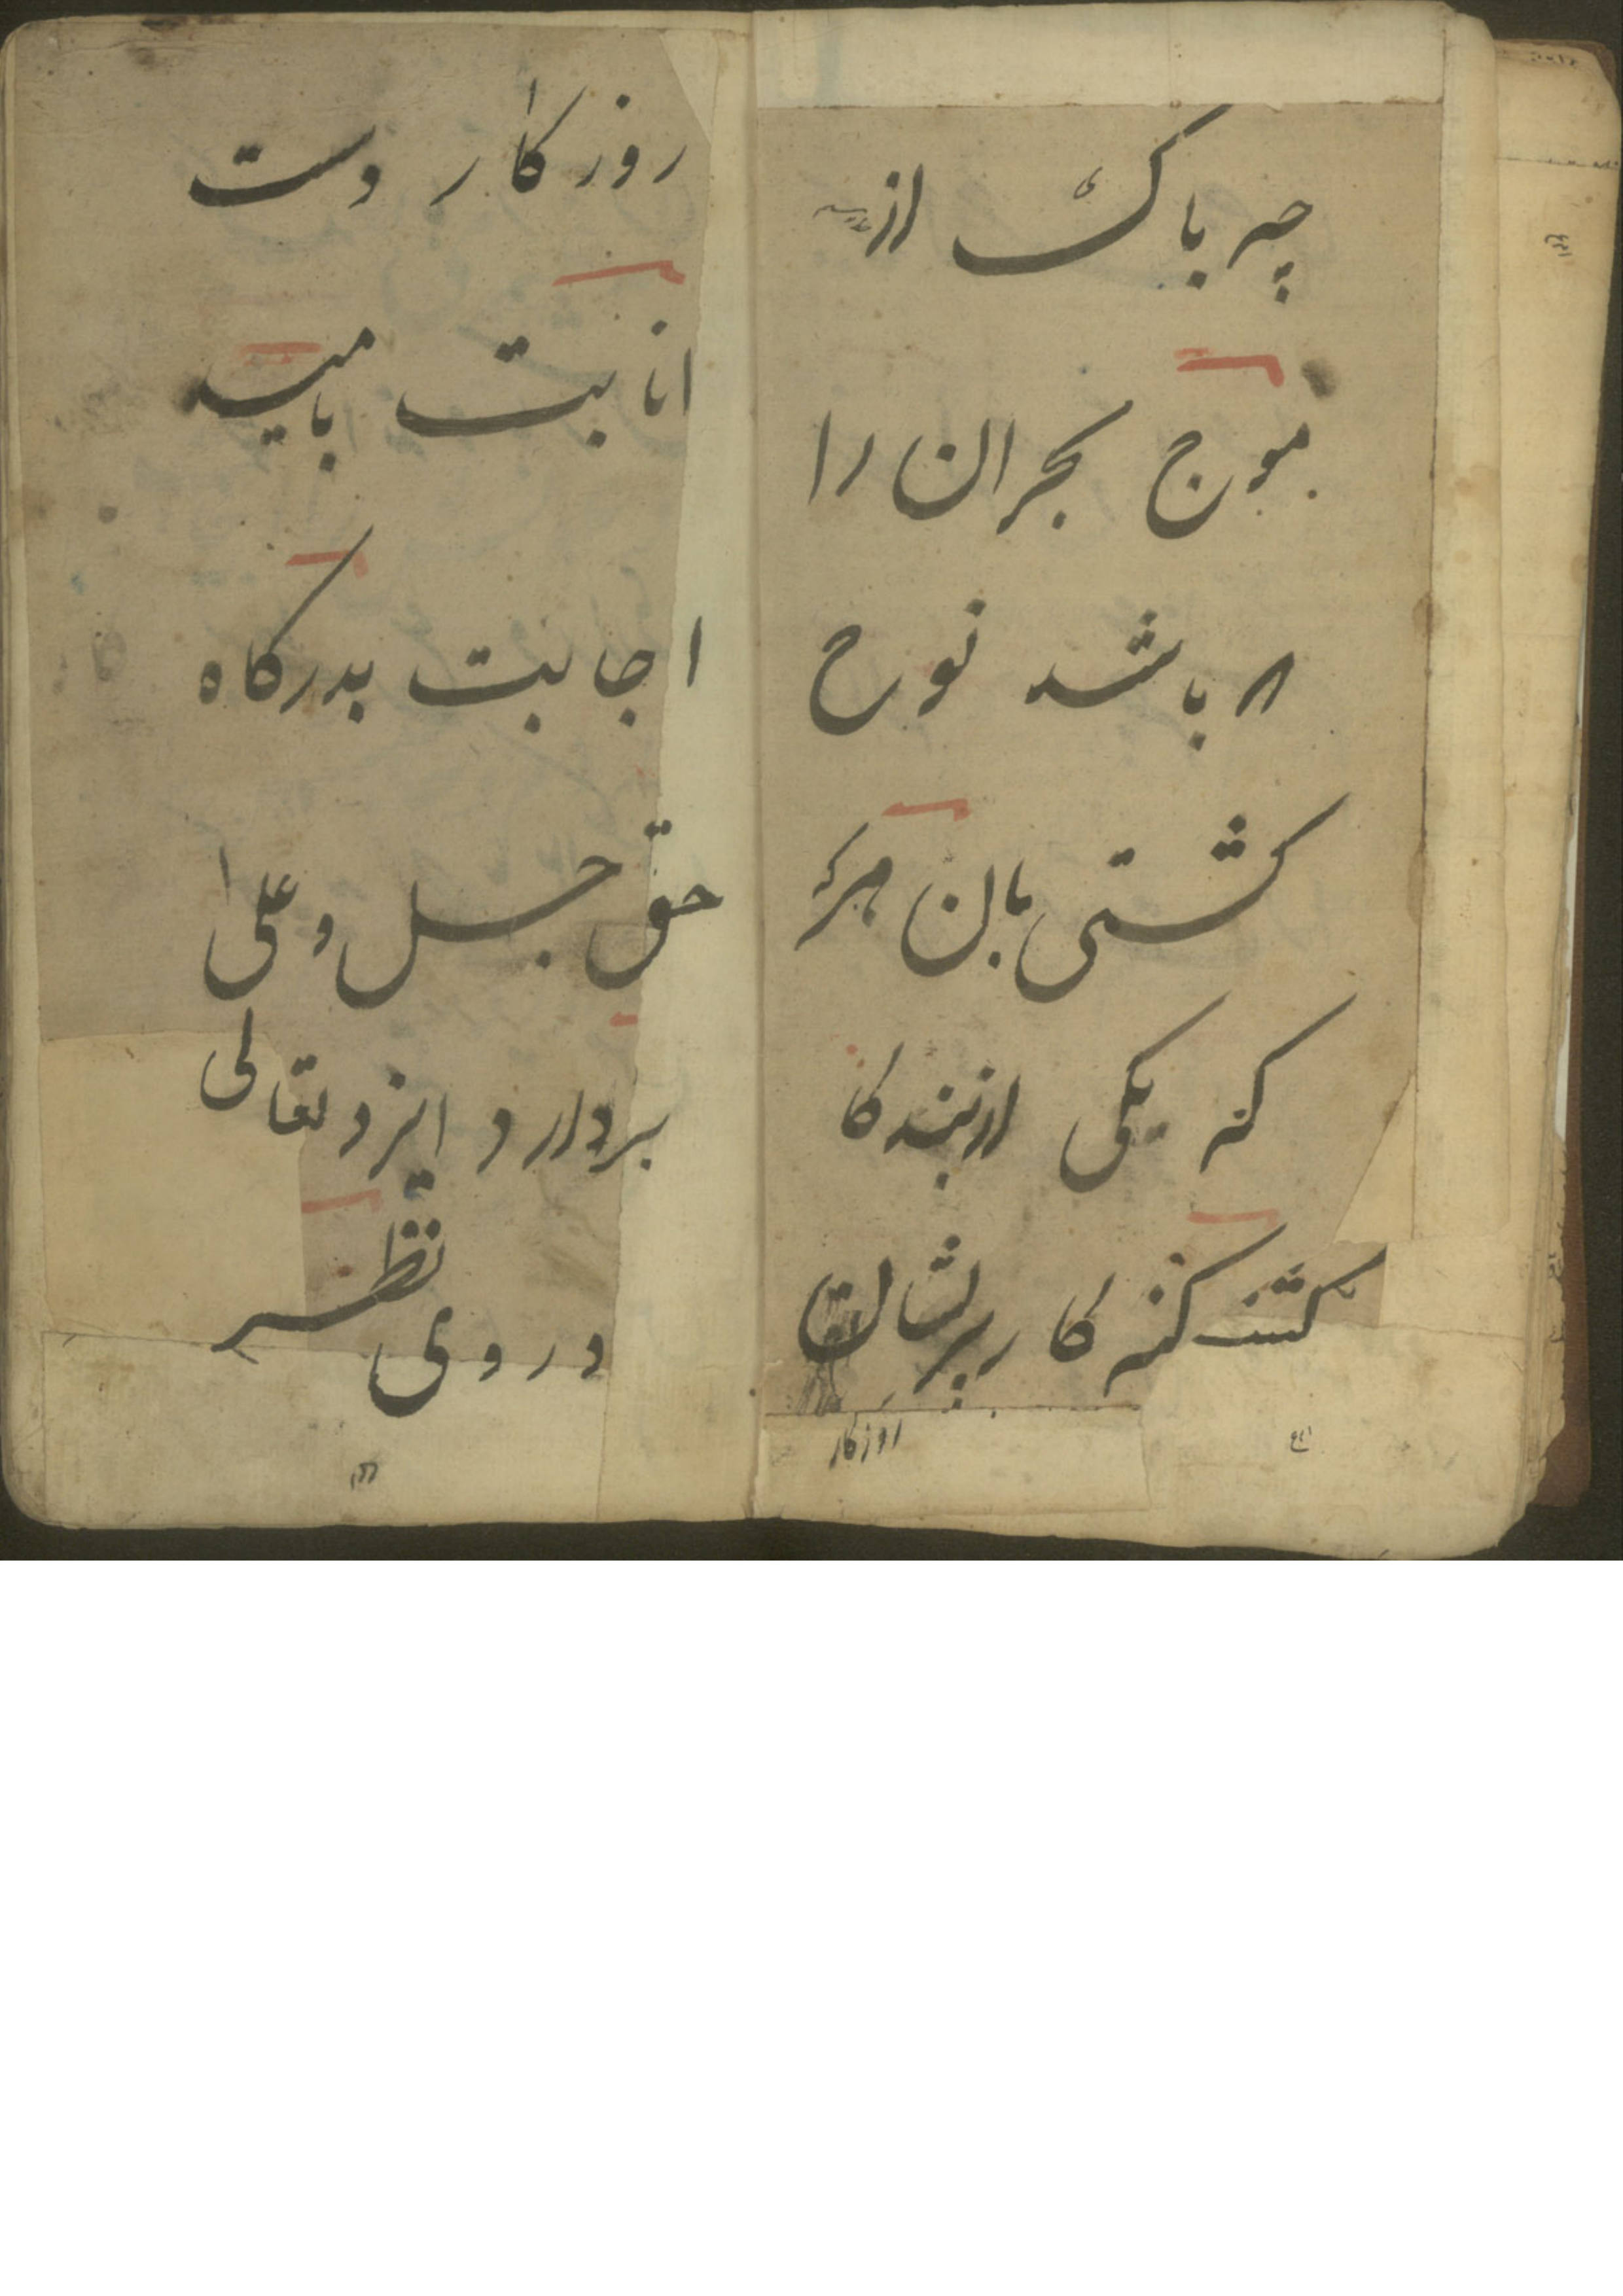 چه باک از
موج بحران را
که باشد نوح
کشتی بان هر
که یکی از بندکا
کنه کار پریشان
روزکار
روزکار دست
انابت بامید
اجابت بدرکاه
حق جل و علی
بردارد ایزد تعالی
در وی نظر